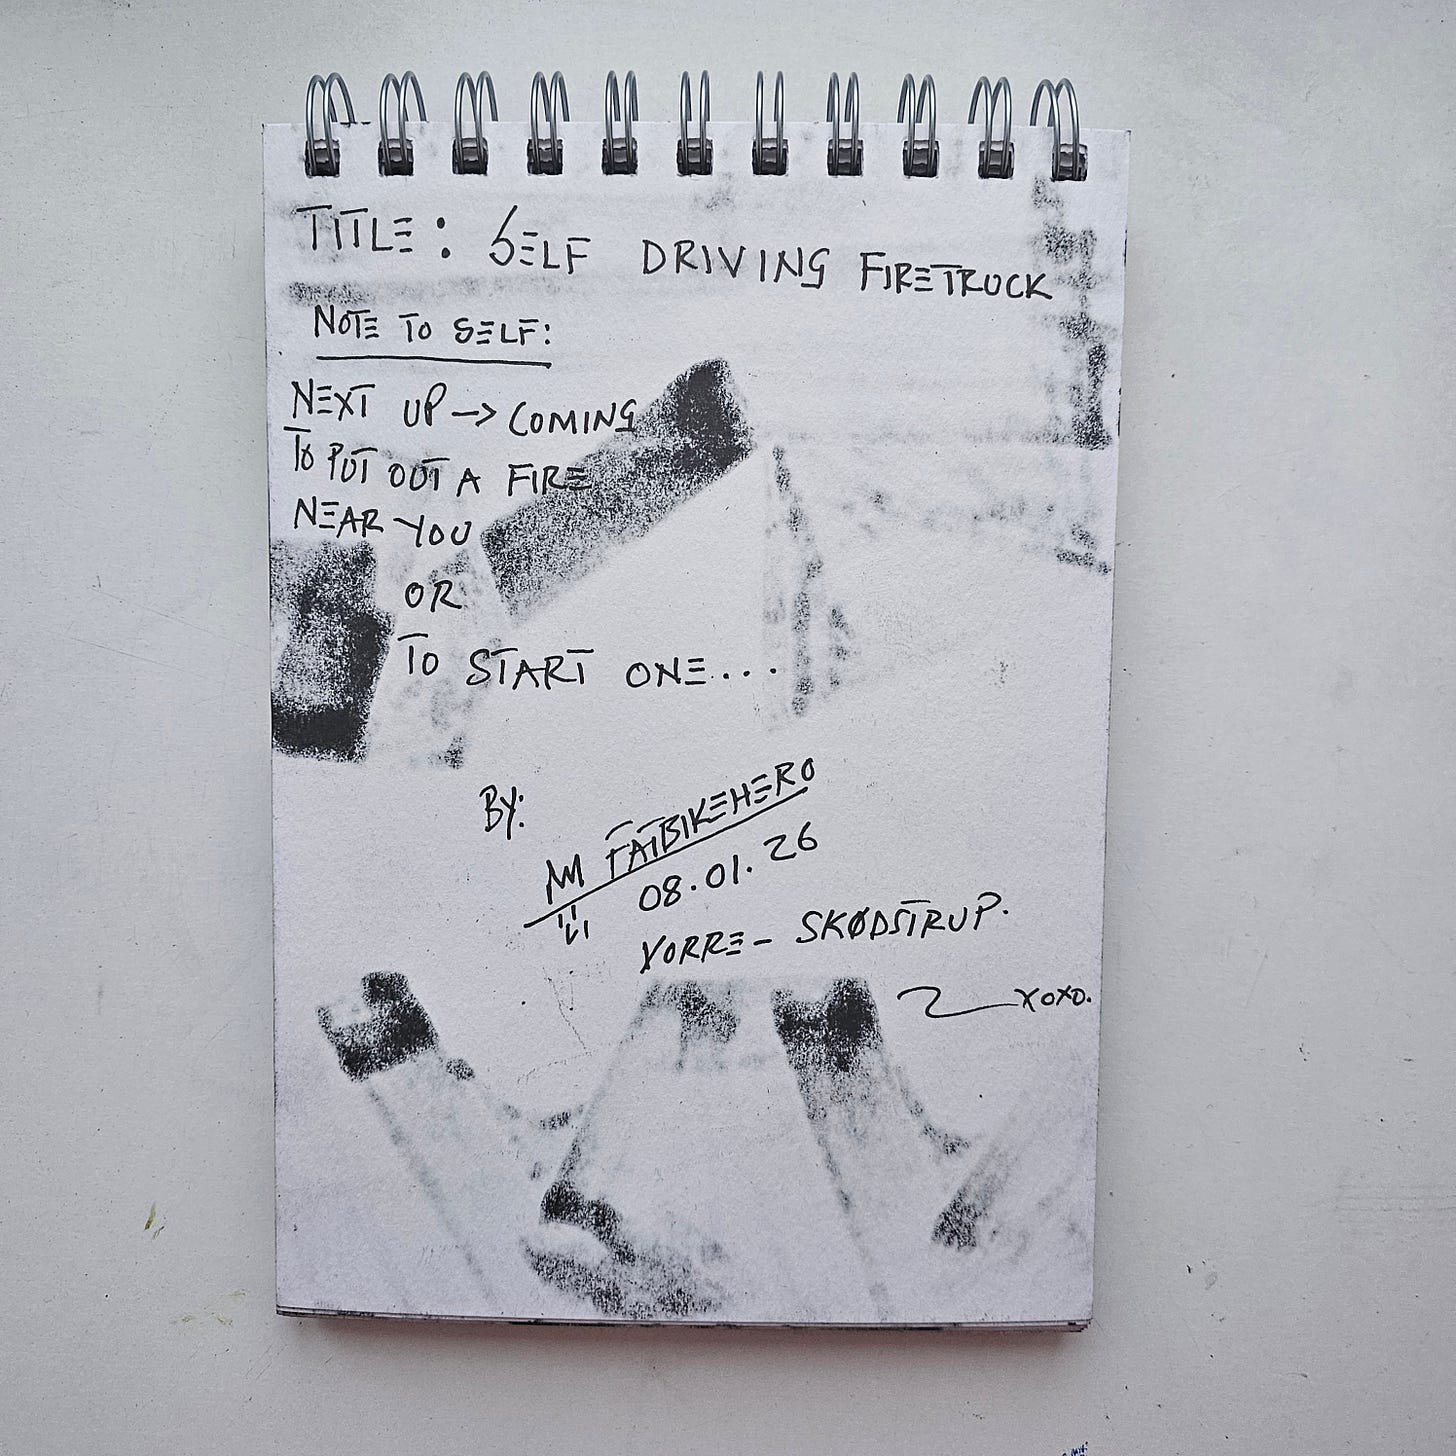 TITLE: SELF DRIVING FIRETRUCK
NOTE TO SELF:
NEXT UP → COMING
TO PUT OUT A FIRE
NEAR YOU
OR
TO START ONE...
BY:
FATBIKEHERO
08.01.26
VORRE - SKØDSTRUP.
XOXO.